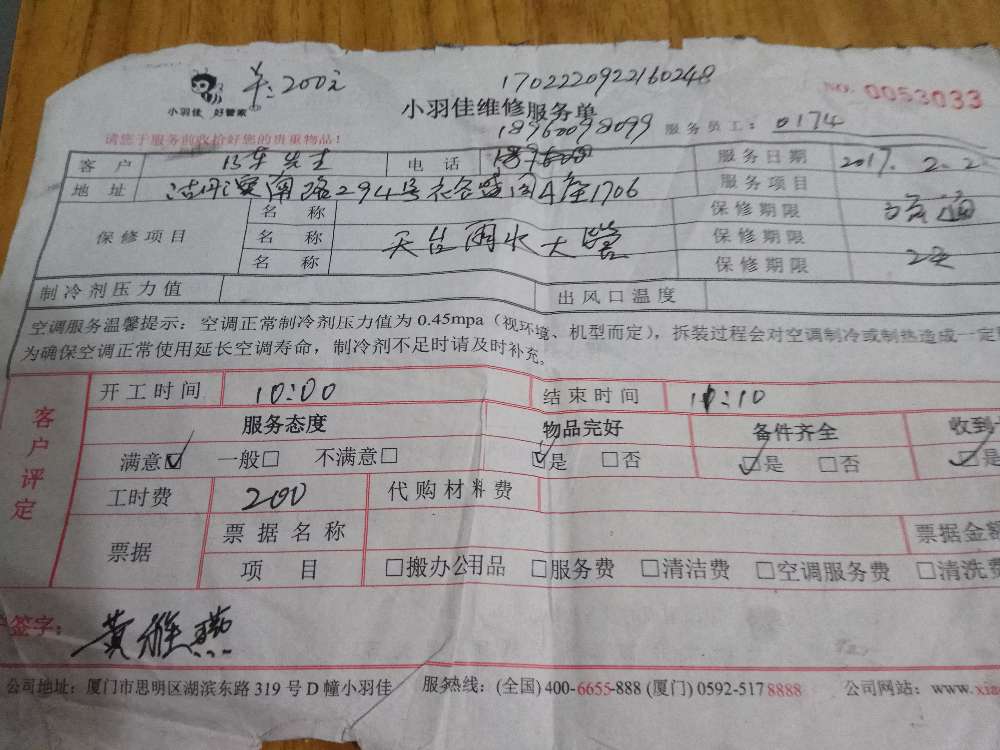 羊:200元
1702220922160248
NO. 0053033
小羽佳 好管家
小羽佳维修服务单
请您于服务前收拾好您的贵重物品！
18960098099
服务员工： 0174
客户 先生 电话 服务日期 2017.2.2
地址 湖滨南路294号 A座1706 服务项目
保修项目 名称 保修期限
名称 天台雨水大管 保修期限
名称 保修期限
制冷剂压力值 出风口温度
空调服务温馨提示：空调正常制冷剂压力值为 0.45mpa（视环境、机型而定），拆装过程会对空调制冷或制热造成一定
为确保空调正常使用延长空调寿命，制冷剂不足时请及时补充。
客户评定
开工时间 10:00 结束时间 11:10
服务态度 物品完好 备件齐全 收到
满意☑ 一般□ 不满意□ ☑是 □否 ☑是 □否 ☑是
工时费 200 代购材料费
票据 票据名称 票据金额
项目 □搬办公用品 □服务费 □清洁费 □空调服务费 □清洗费
签字： 黄雅燕
公司地址：厦门市思明区湖滨东路 319 号 D 幢小羽佳 服务热线：(全国) 400-6655-888 (厦门) 0592-517 8888 公司网站：www.xia